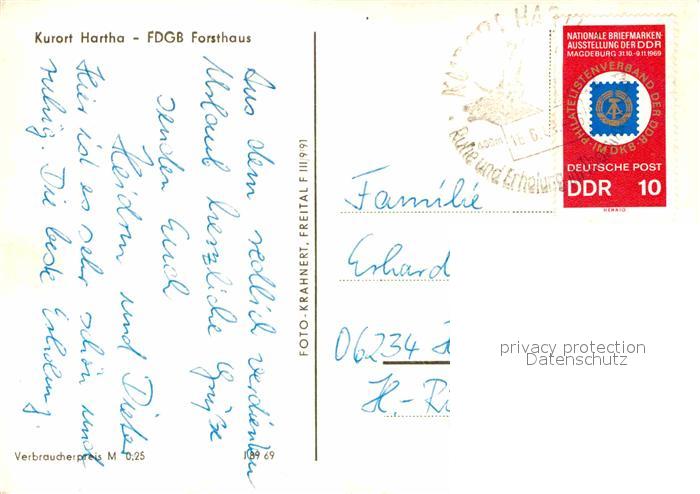 Kurort Hartha - FDGB Forsthaus
Aus dem redlich verdienten
Urlaub herzliche Grüße
senden Euch
Heidrun und Dieter
Hier ist es sehr schön und
ruhig. Die beste Erholung.
Verbraucherpreis M 0,25
J 09 69
FOTO-KRAHNERT, FREITAL F III/9/91
KURORT HA
Ruhe und Erholung
NATIONALE BRIEFMARKEN-
AUSSTELLUNG DER DDR
MAGDEBURG 31.10.-9.11.1969
PHILATELISTENVERBAND DER DDR
IM DKB
DEUTSCHE POST
DDR 10
Familie
Erhard
06234
H.-Ri
privacy protection
Datenschutz